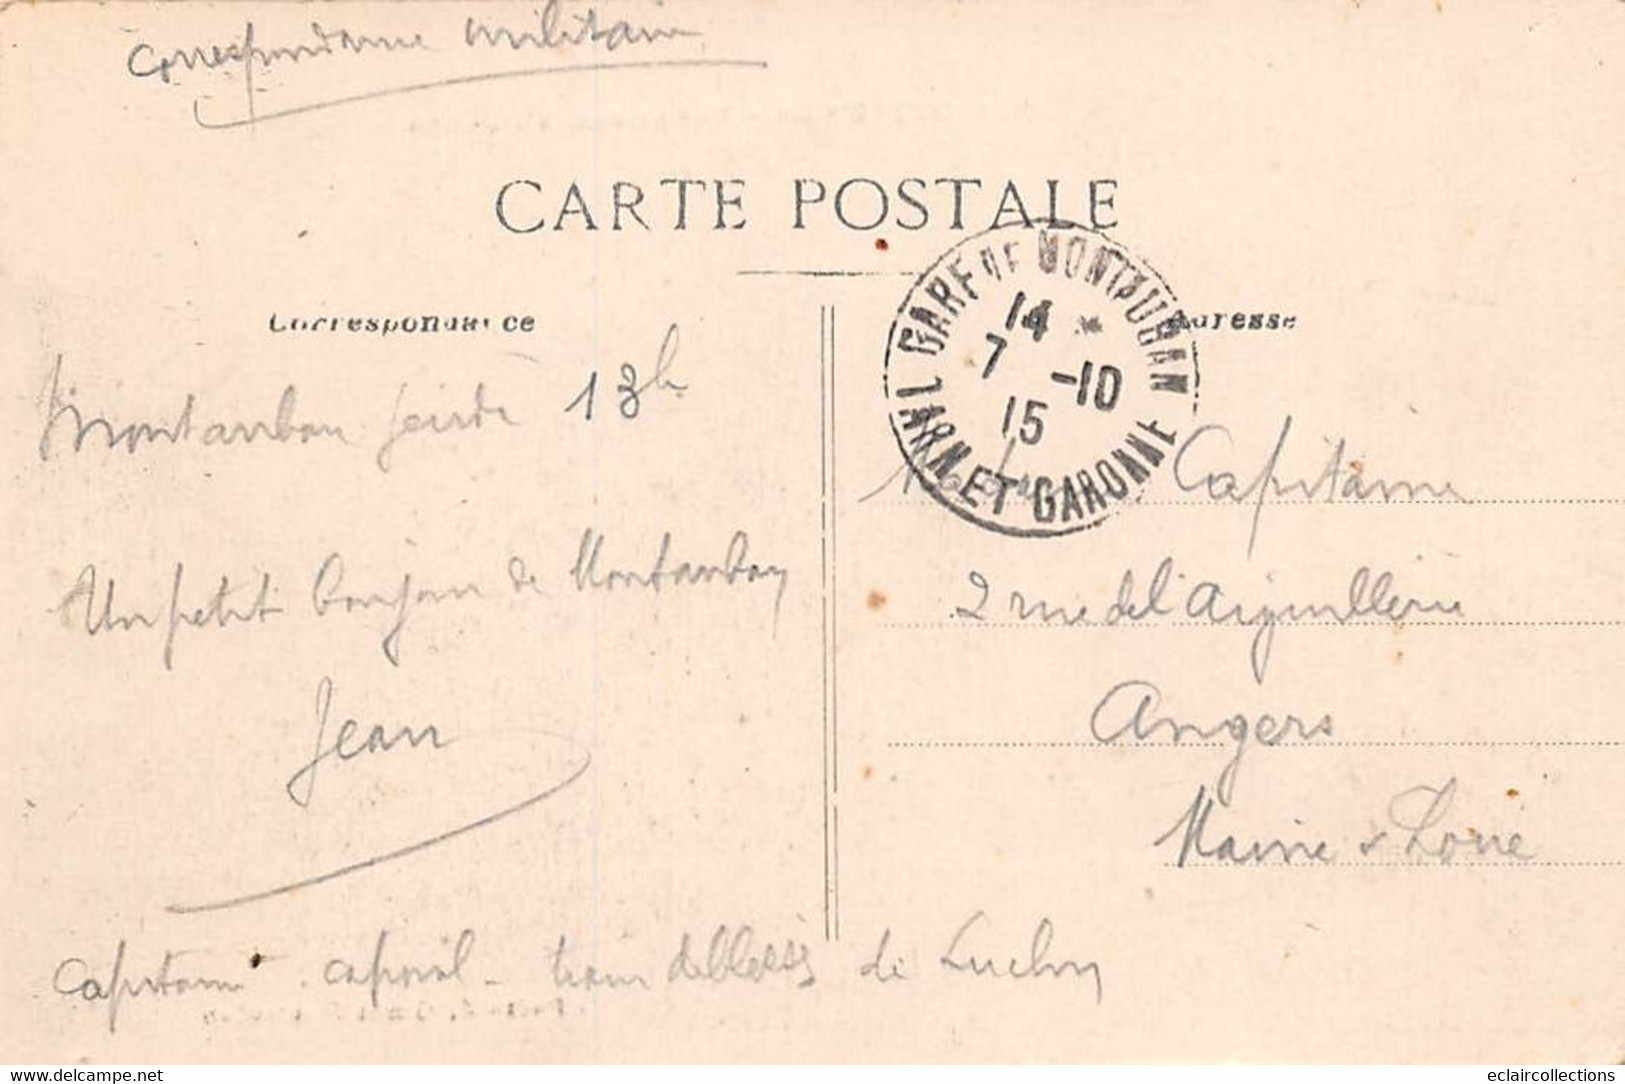 Correspondance militaire
CARTE POSTALE
Correspondance
Adresse
GARE DE MONTAUBAN
14 *
7 -10
15
TARN ET GARONNE
Montauban jeudi 13h
Un petit bonjour de Montauban
Jean
Capitaine
2 rue de l'aiguillerie
Angers
Maine & Loire
Capitaine . caporal - train de blessés de Luchon
delcampe.net
eclaircollections